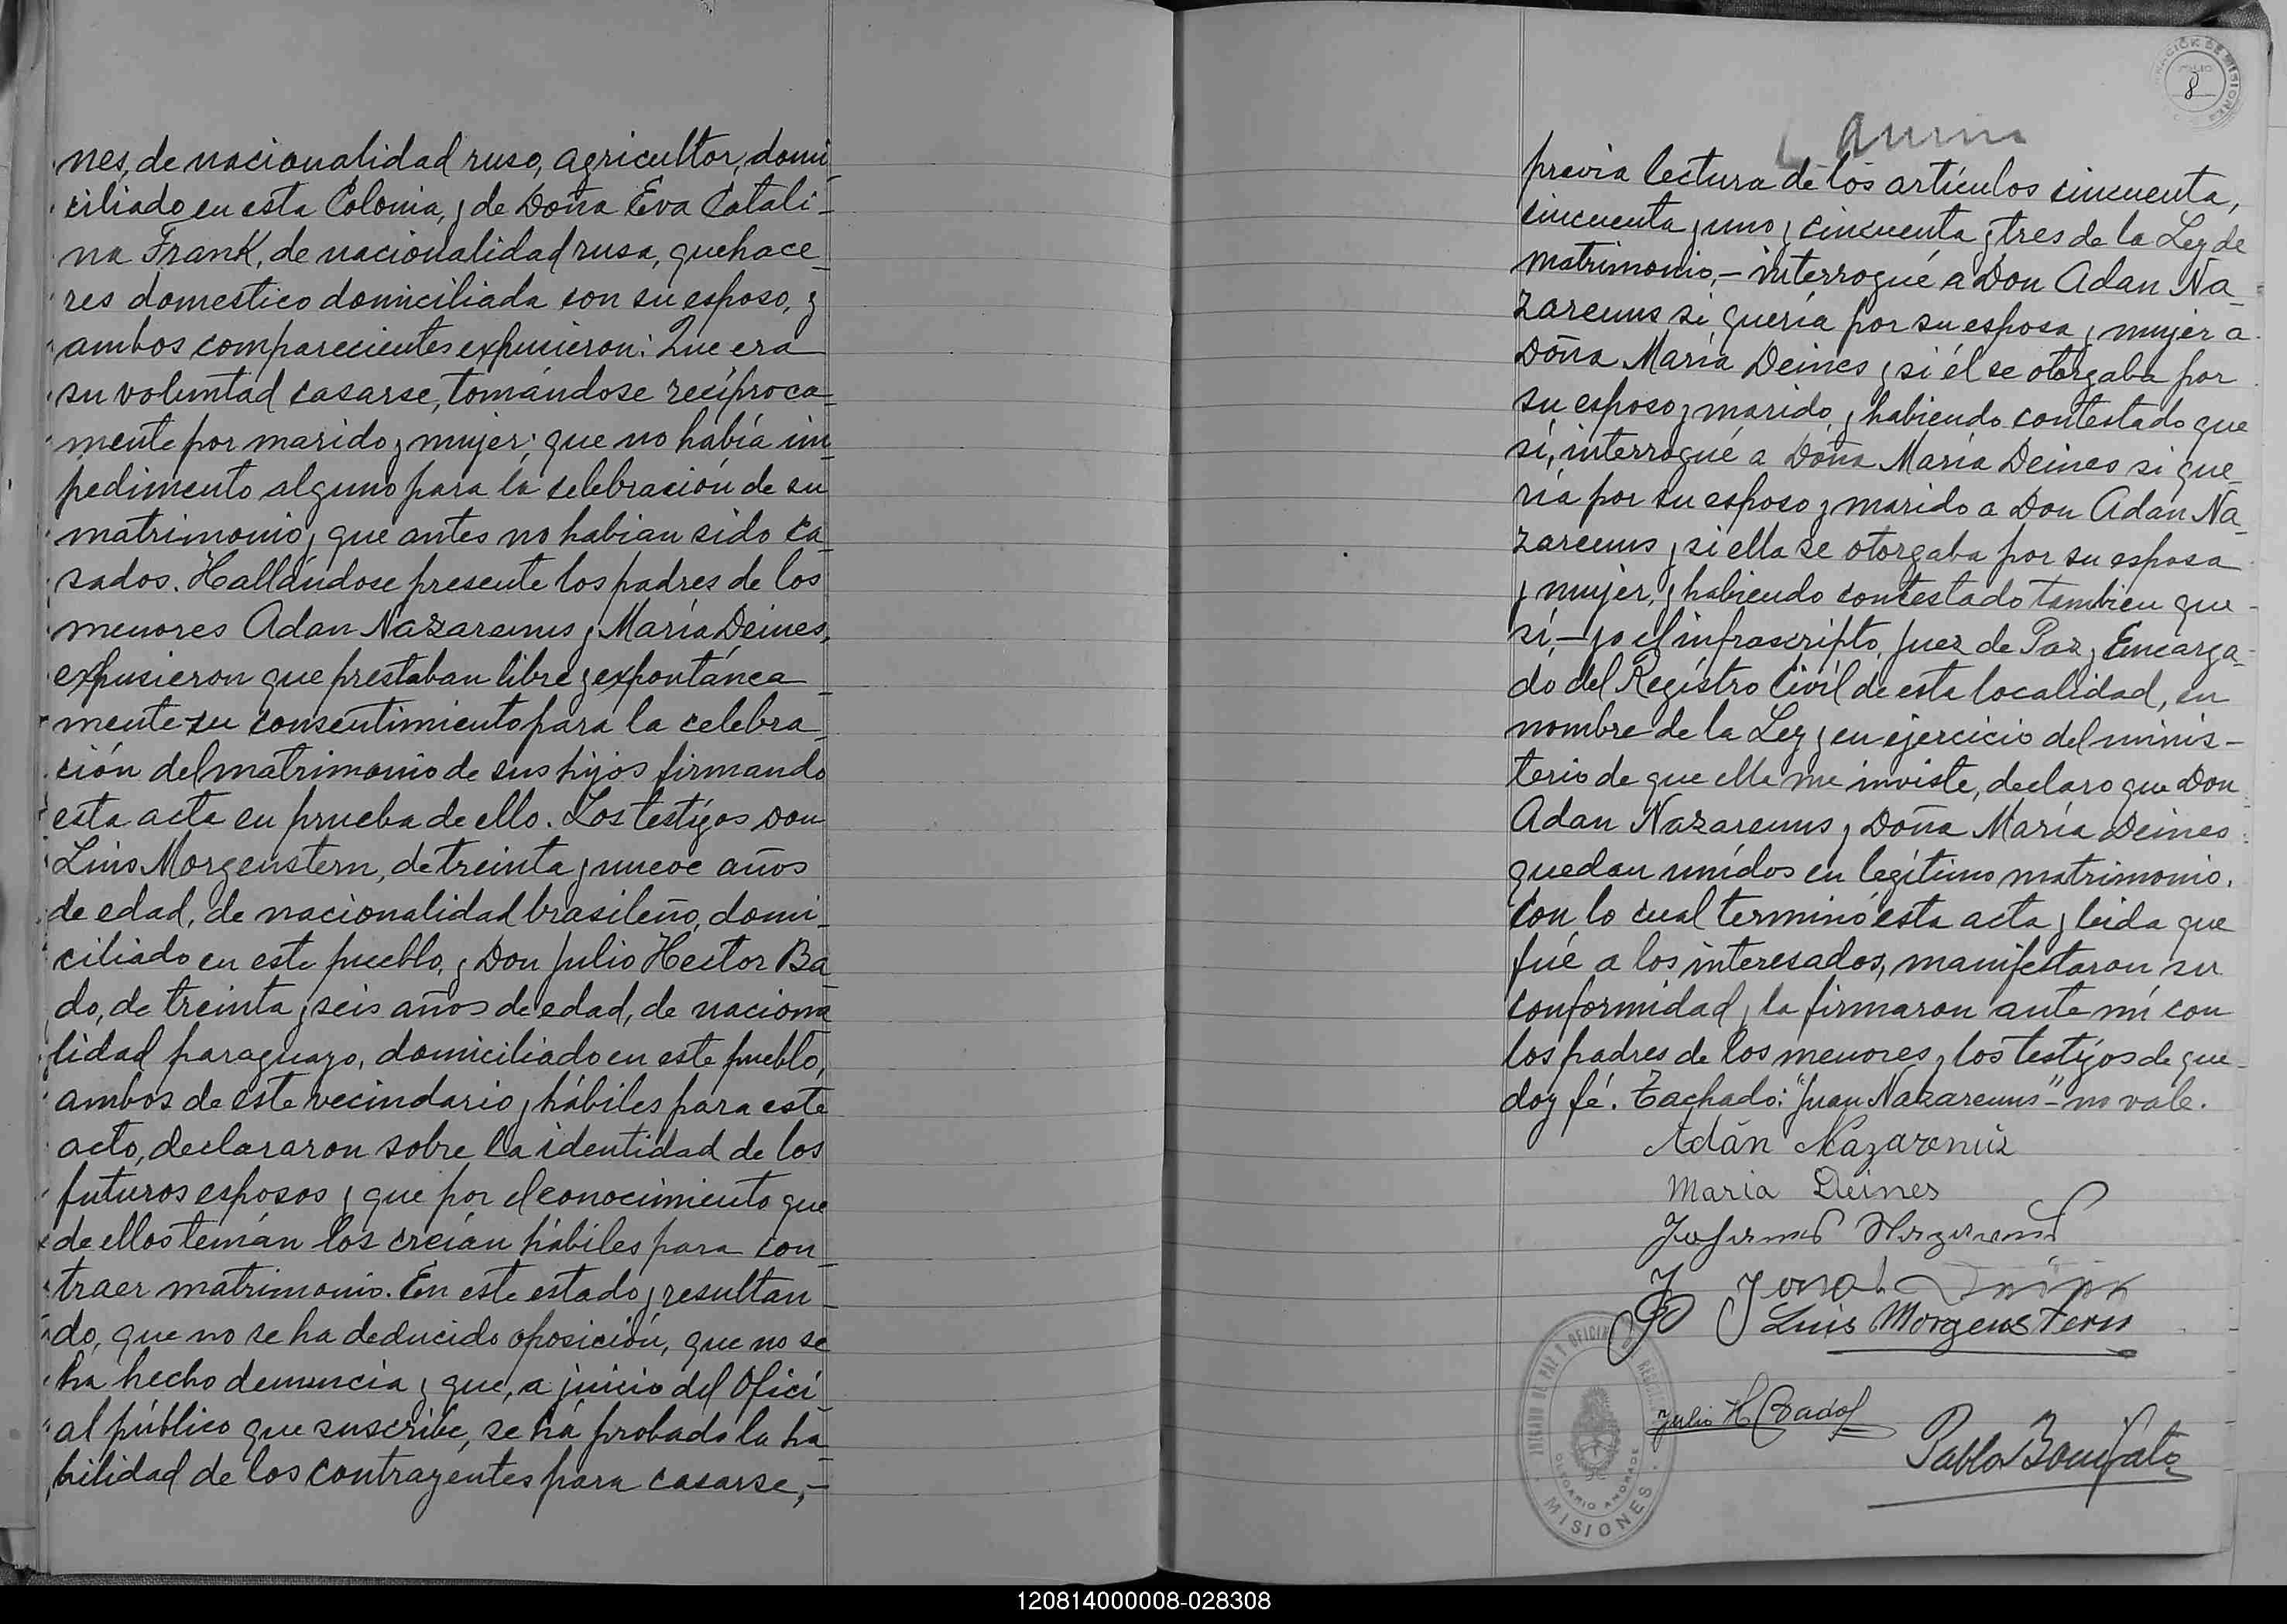 nes, de nacionalidad ruso, agricultor, domi_
ciliado en esta Colonia, y de Doña Eva Catali_
na Frank, de nacionalidad rusa, quehace_
res domestico domiciliada con su esposo, y
ambos comparecientes expusieron: Que era
su voluntad casarse, tomándose recíproca_
mente por marido y mujer; que no había im_
pedimento alguno para la celebración de su
matrimonio y que antes no habian sido ca_
sados. Hallándose presente los padres de los
menores Adan Nazarenus y María Deines,
expusieron que prestaban libre y expontánea_
mente su consentimiento para la celebra_
ción del matrimonio de sus hijos firmando
esta acta en prueba de ello. Los testigos Don
Luis Morgenstern, de treinta y nueve años
de edad, de nacionalidad brasileño, domi_
ciliado en este pueblo, y Don Julio Hector Ba_
do, de treinta y seis años de edad, de naciona_
lidad paraguayo, domiciliado en este pueblo,
ambos de este vecindario y hábiles para este
acto, declararon sobre la identidad de los
futuros esposos y que por el conocimiento que
de ellos tenían los creían hábiles para con_
traer matrimonio. En este estado y resultan_
do, que no se ha deducido oposición, que no se
ha hecho denuncia y que, a juicio del Ofici_
al público que suscribe, se há probado la ha_
bilidad de los contrayentes para casarse,-
8
previa lectura de los artículos cincuenta,
cincuenta y uno y cincuenta y tres de la Ley de
matrimonio,- interrogué a Don Adan Na_
zarenus si quería por su esposa y mujer a
Doña María Deines y si él se otorgaba por
su esposo y marido, y habiendo contestado que
sí, interrogué a Doña María Deines si que_
ría por su esposo y marido a Don Adan Na_
zarenus y si ella se otorgaba por su esposa
y mujer, y habiendo contestado tambien que
sí,- yo el infrascripto, Juez de Paz y Encarga_
do del Regístro Civíl de esta localidad, en
nombre de la Ley y en ejercicio del minis-
terio de que ella me inviste, declaro que Don
Adan Nazarenus y Doña María Deines
quedan unídos en legítimo matrimonio.
Con lo cual terminó esta acta y leida que
fué a los interesados, manifestaron su
conformidad y la firmaron ante mí con
los padres de los menores y los testigos de que
doy fé. Tachado: "Juan Nazarenus"- no vale.
Adán Nazarenus
Maria Deines
Luis Morgenstern
Julio H. Bado
Pablo
JUZGADO DE PAZ Y OFICINA DE REGISTRO
OLEGARIO ANDRADE
MISIONES
120814000008-028308